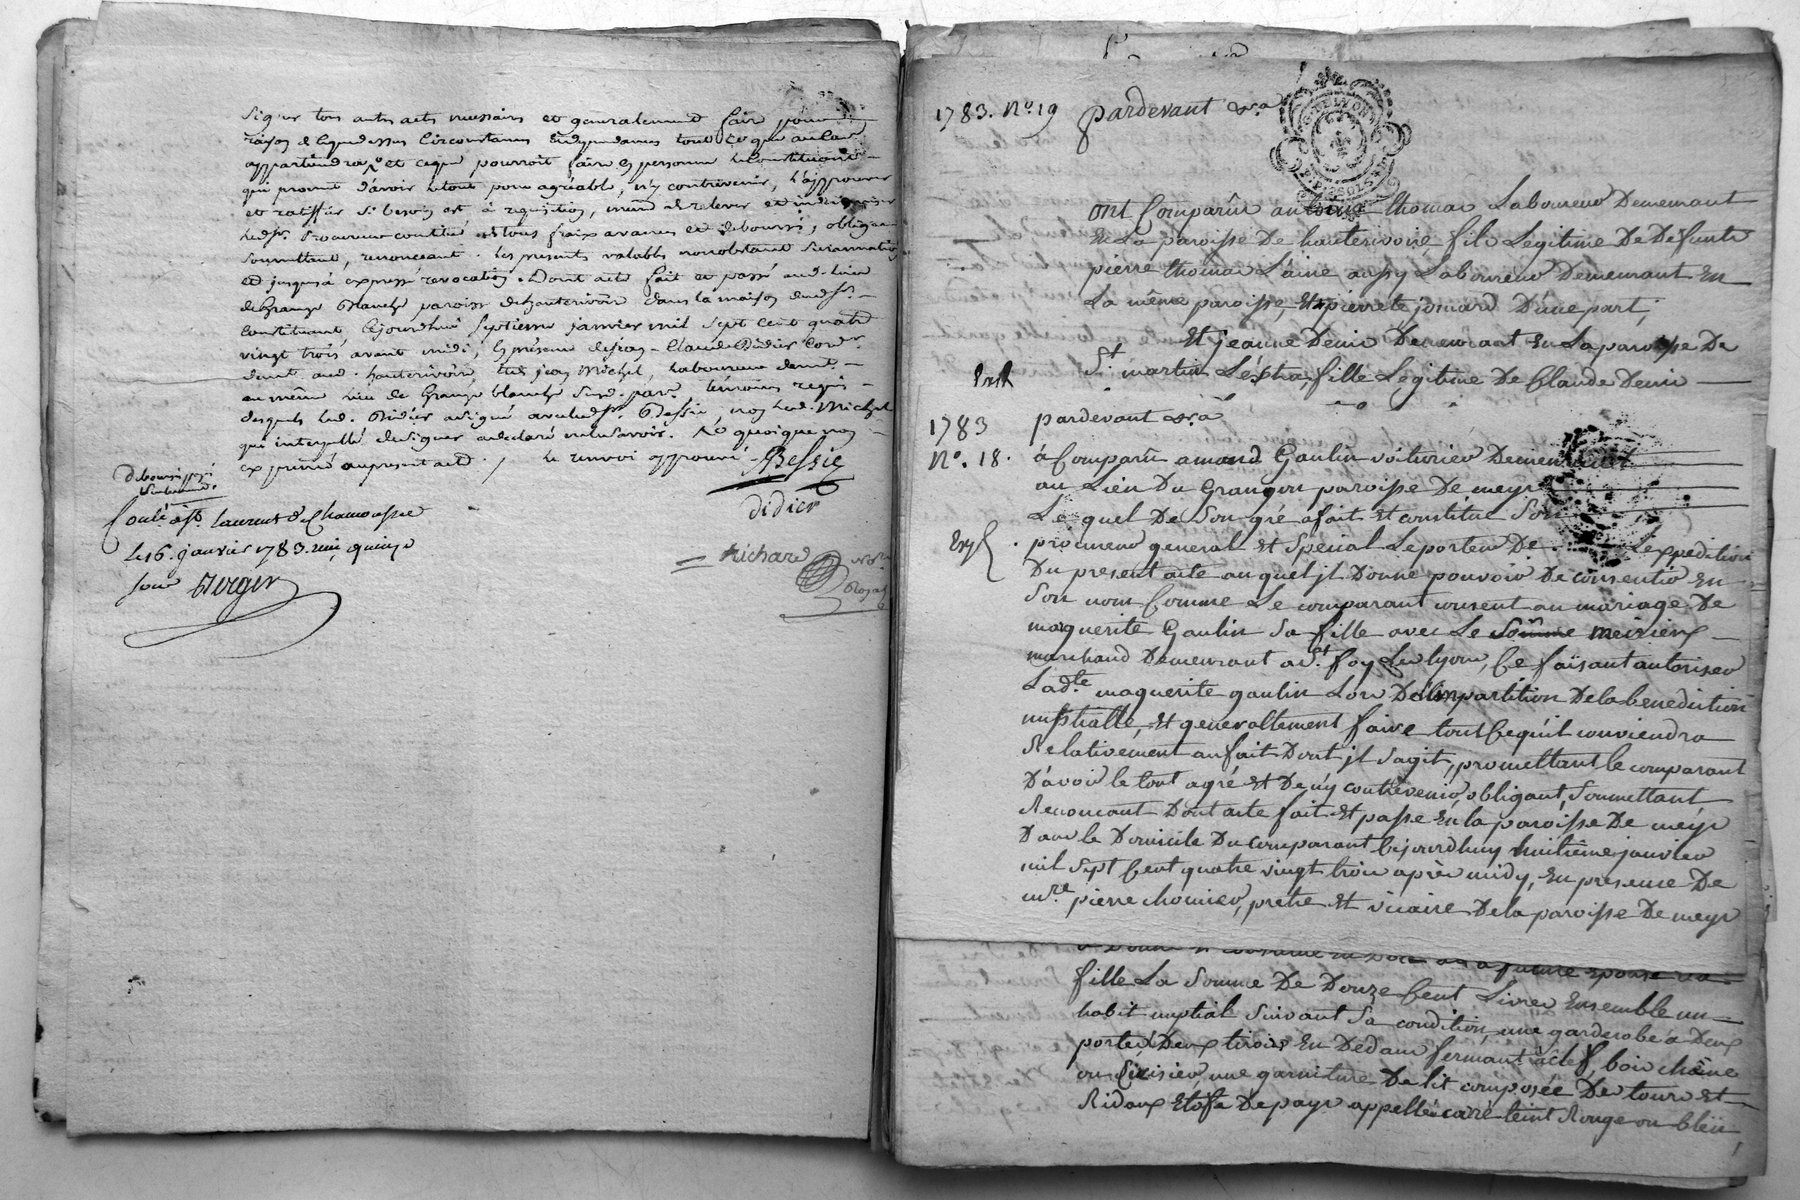 signer tous autres actes necessaires et generalement faire pour
raison de ce que dessus circonstances et dependances tout ce que au cas
appartiendra et ce que pourroit faire en personne le constituant
qui promet d'avoir le tout pour agréable, n'y contrevenir, l'approuver
et ratiffier si besoin est à requisition, même de relever et indemniser
led. sr. procureur constitué de tous fraix avances et deboursés, obligeant
soumettant, renonceant. les presentes valables nonobstant surannation
et jusqu'à expresse révocation. Dont acte fait et passé aud. lieu
de Grange Blanche paroisse de hauterivoire dans la maison dud. sr.
constituant, cejourdhui septieme janvier mil sept cent quatre
vingt trois avant midi, en présence de jean-Claude Didier Cord.r
demt. aud. hauterivoire et de jean Michel, laboureur demt.
au même lieu de Grange blanche susd. parr. temoins requis
desquels led. Didier a signé avec led. sr. Bessie, non led. Michel
qui interpellé de signer a declaré ne le savoir.
le renvoi approuvé. Bessie
didier
Richard
Conlé à St. Laurent de Chamousset
le 16. janvier 1783. reçu quinze
sous Verger
1783. No. 19 pardevant &.a
ont Comparûs antoine thomas Laboureur Demeurant
En La paroisse De hauterivoire fils Legitime De Défunts
pierre thomas L'aine aussy Laboureur Demeurant En
La même paroisse, Et pierrete jomard D'une part;
Et jeanne Denis Demeurant En La paroisse De
St. martin L'éstra, fille Legitime De Claude Denis
Exp.
1783 pardevant &.a
No. 18. à Comparû amand Gaulin voiturier Demeurant
au Lieu Du Grangeon paroisse De meys
Le quel De Son gré a fait Et constitue Son
procureur general Et Special Le porteur De L'expedition
Du present acte au quel jl Donne pouvoir De consentir En
Son nom Comme Le comparant consent au mariage De
marguerite Gaulin Sa fille avec Le Somme meizieux
marchand Demeurant a Ste. foy Les lyon, Ce faisant autoriser
Ladte. marguerite gaulin Lors De L'impartition De la benediction
nuptialle, Et generallement faire tout Ce qu'il conviendra
Relativement au fait Dont jl S'agit, promettant le comparant
D'avoir le tout agré Et De n'y contrevenir, obligant, Soumettant
Renoncant Dont acte fait Et passé En la paroisse De meys
Dans le Domicile Du comparant Cejourd'huy huitieme janvier
mil Sept Cent quatre vingt trois après midy, En presence De
mre. pierre chomier, pretre Et vicaire De la paroisse De meys
fille La Somme De Douze Cent Livres Ensemble un
habit nuptial Suivant Sa condition, une garderobe à Deux
portes Deux tiroirs En Dedans fermant à clef, bois chêne
ou Cerisier, une garniture De lit composée De tours Et
Rideaux Etofe De pays appellée caré teint Rouge ou bleu,